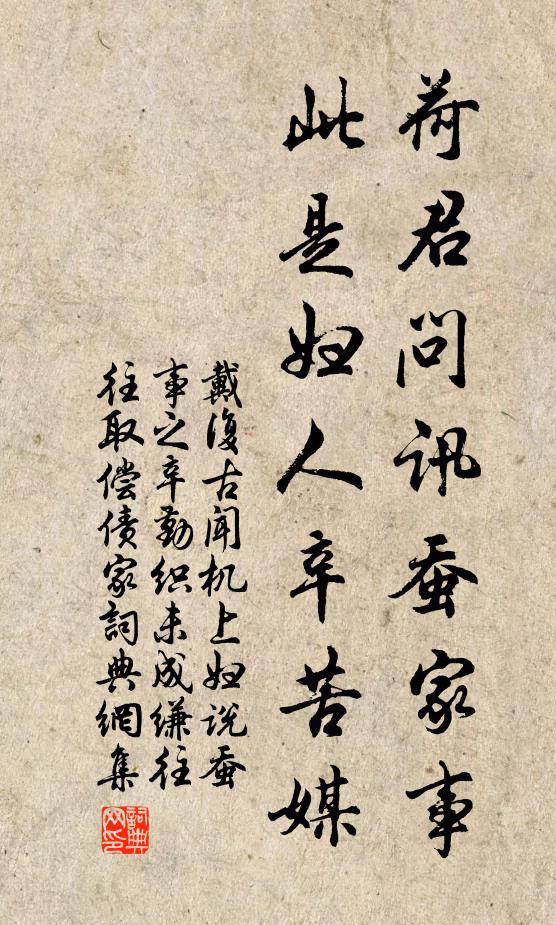 荷君问讯蚕家事
此是妇人辛苦媒
戴復古闻机上妇说蚕
事之辛勤织未成缣往
往取偿债家詞典網集
詞典
网印